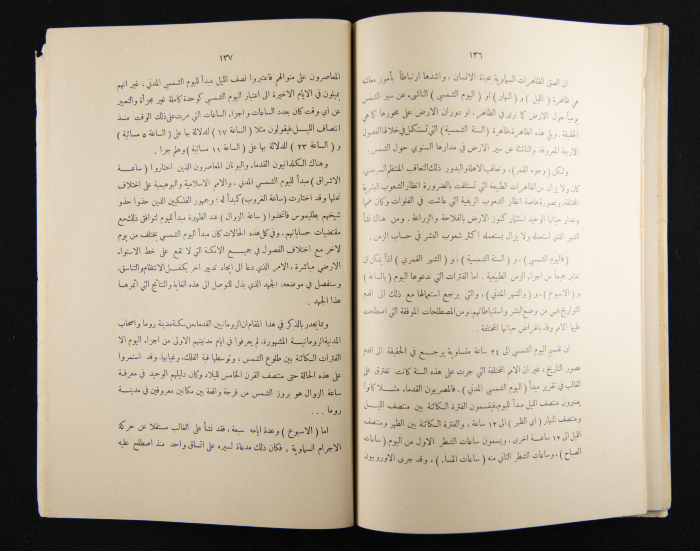 ١٣٦
ان الصق الظاهرات السماوية بحياة الانسان ، واشدها ارتباطاً بأمور معاشه
هي ظاهرة ( الليل ) و ( النهار ) او ( اليوم الشمسي ) الناشىء عن سير الشمس
يومياً حول الارض كما نرى في الظاهر ، او دوران الارض على محورها كما هي
الحقيقة . ويلي هذه الظاهرة، ظاهرة ( السنة الشمسية ) التي تستكمل في خلالها الفصول
الاربعة المعروفة، والناشئة عن سير الارض في مدارها السنوي حول الشمس .
ولكن ( وجوه القمر ) ، وتعاقب الاهلة والبدور ذلك التعاقب المنتظم السرمدي
كان ولا يزال من الظاهرات الطبيعية التي تستلفت بالضرورة انظار الشعوب البشرية
المختلفة وبصورة خاصة انظار الشعوب الريفية التي عاشت في الفلوات وكان همها
ومدار حياتها الوحيد استثمار كنوز الارض بالفلاحة والزراعة . ومن هناك نشأ
الشهر الذي استعمله ولا يزال يستعمله اكثر شعوب البشر في حساب الزمن .
( فاليوم الشمسي ) ، و ( السنة الشمسية ) ، و ( الشهر القمري ) اذاً يمكن ان
تعتبر جميعاً من اجزاء الزمن الطبيعية . اما الفترات التي ندعوها اليوم ( بالساعة )
و ( الاسبوع ) ، و ( والشهر المدني ) ، والتي يرجع استعمالها مع ذلك الى اقدم
التواريخ، فهي من وضع البشر واستنباطاتهم، ومن المصطلحات الموفقة التي اصطلحت
عليها الامم وفقاً لاغراض حياتها المختلفة .
ان تقسيم اليوم الشمسي الى ٢٤ ساعة متساوية يرجع في الحقيقة الى اقدم
عصور التاريخ ، غير ان الامم المختلفة التي جرت على هذه السنة كانت تفترق على
الغالب في تقرير مبدأ ( اليوم الشمسي المدني ) . فالمصريون القدماء مثلا كانوا
يعتبرون منتصف الليل مبدأ لليوم، فيقسمون الفترة الكائنة بين منتصف الليل
ومنتصف النهار ( اي الظهر ) الى ١٢ ساعة ، والفترة الكائنة بين الظهر ومنتصف
الليل الى ١٢ ساعة اخرى . ويسمون ساعات الشطر الاول من اليوم ( ساعات
الصباح ) ، وساعات الشطر الثاني منه ( ساعات المساء ) . وقد جرى الاوروبيون
١٣٧
المعاصرون على منوالهم فاعتبروا نصف الليل مبدأ لليوم الشمسي المدني ، غير انهم
يميلون في الايام الاخيرة الى اعتبار اليوم الشمسي كوحدة كاملة غير مجزأة والتعبير
عن اي وقت كان بعدد الساعات واجزاء الساعات التي مرت على ذلك الوقت منذ
انتصاف الليل، فيقولون مثلا ( الساعة ١٧ ) للدلالة بها على ( الساعة ٥ مسائية )
و ( الساعة ٢٣ ) للدلالة بها على ( الساعة ١١ مسائية ) وهلم جرا .
وهناك الكلدانيون القدماء، واليونان المعاصرون الذين اختاروا ( ساعة
الاشراق ) مبدأ لليوم الشمسي المدني ، والامم الاسلامية والبوهيمية على اختلاف
نحلها وقد اختارت ( ساعة الغروب ) كبدأ له ؛ وجمهور الفلكيين الذين حذوا حذو
شيخهم بطليموس فاتخذوا ( ساعة الزوال ) عند الظهيرة مبدأ لليوم لتوافق ذلك مع
مقتضيات حساباتهم . وفي كل هذه الحالات كان مبدأ اليوم الشمسي يختلف من يوم
لآخر مع اختلاف الفصول في جميع الامكنة التي لا تقع على خط الاستواء
الارضي مباشرة ، الامر الذي دعا الى ايجاد تدبير اخر يكفل الانتظام والتناسق،
وسنفصل في موضعه، الجهد الذي بذل للتوصل الى هذه الغاية والنتائج التي اثمرها
هذا الجهد .
ومما يجدر بالذكر في هذا المقام ان الرومانيين القدماء، من سكنة مدينة روما واصحاب
المدنية الرومانية المشهورة، لم يعرفوا في ايام مدنيتهم الاولى من اجزاء اليوم الا
الفترات الكائنة بين طلوع الشمس ، وتوسطها قبة الفلك، وغيابها. وقد استمروا
على هذه الحالة حتى منتصف القرن الخامس للميلاد وكان دليلهم الوحيد في معرفة
ساعة الزوال هو بروز الشمس من فرجة واقعة بين مكانين معروفين في مدينة
روما . . .
اما ( الاسبوع ) وعدة ايامه سبعة، فقد نشأ على الغالب مستقلا عن حركة
الاجرام السماوية . فكان ذلك مدعاة لسيره على اتساق واحد منذ اصطلح عليه